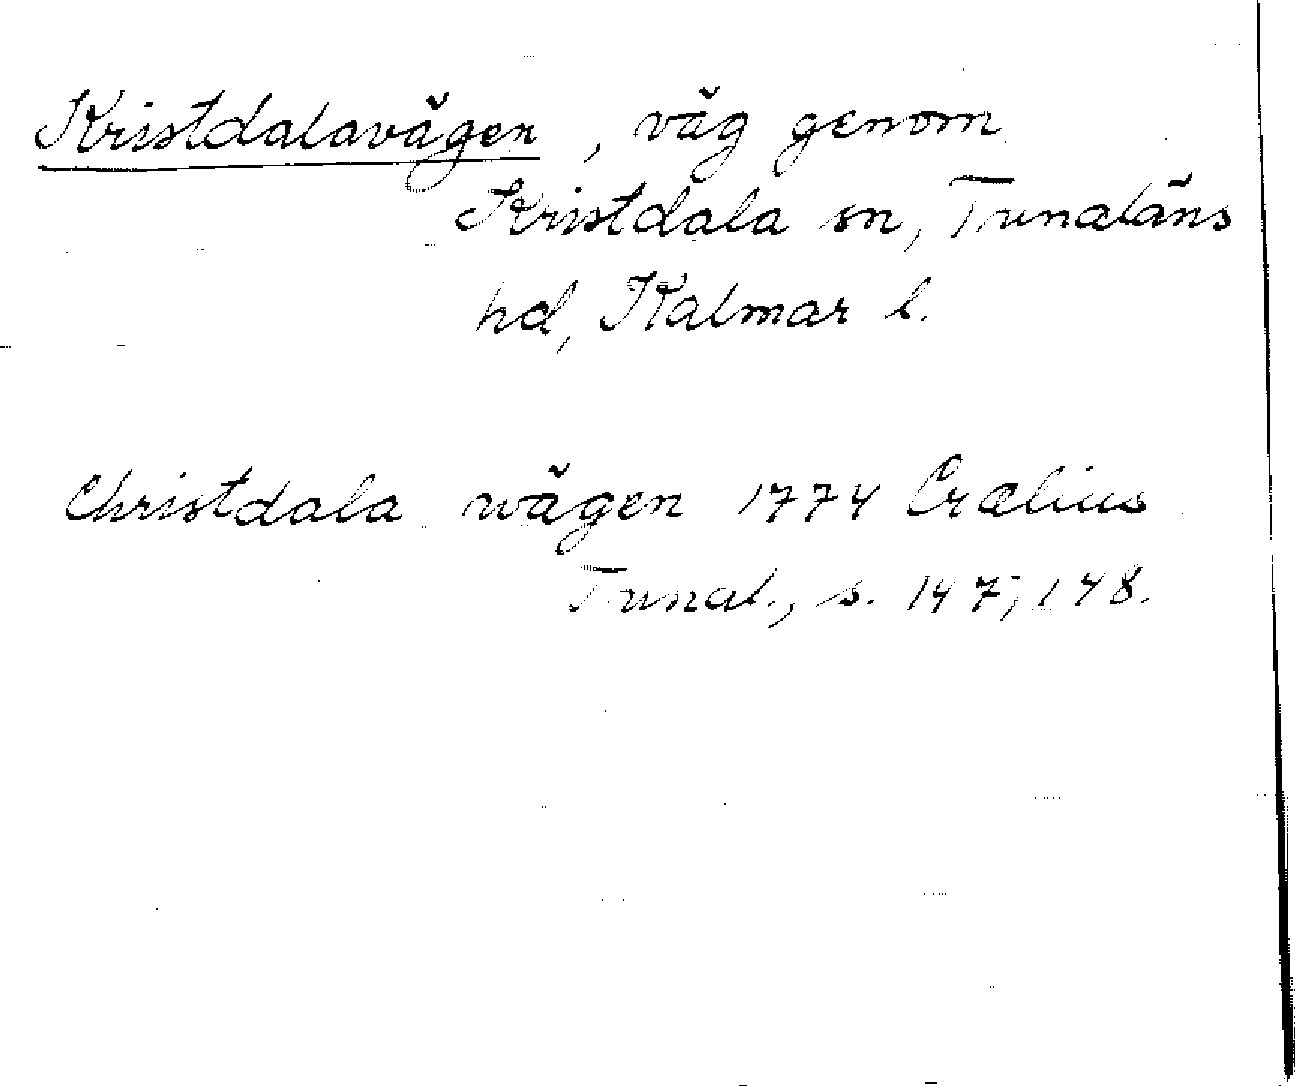 Kristdalavägen, väg genom
Kristdala sn, Tunaläns
hd, Kalmar l.
Christdala wägen 1774 Crælius
Tunal., s. 147, 148.